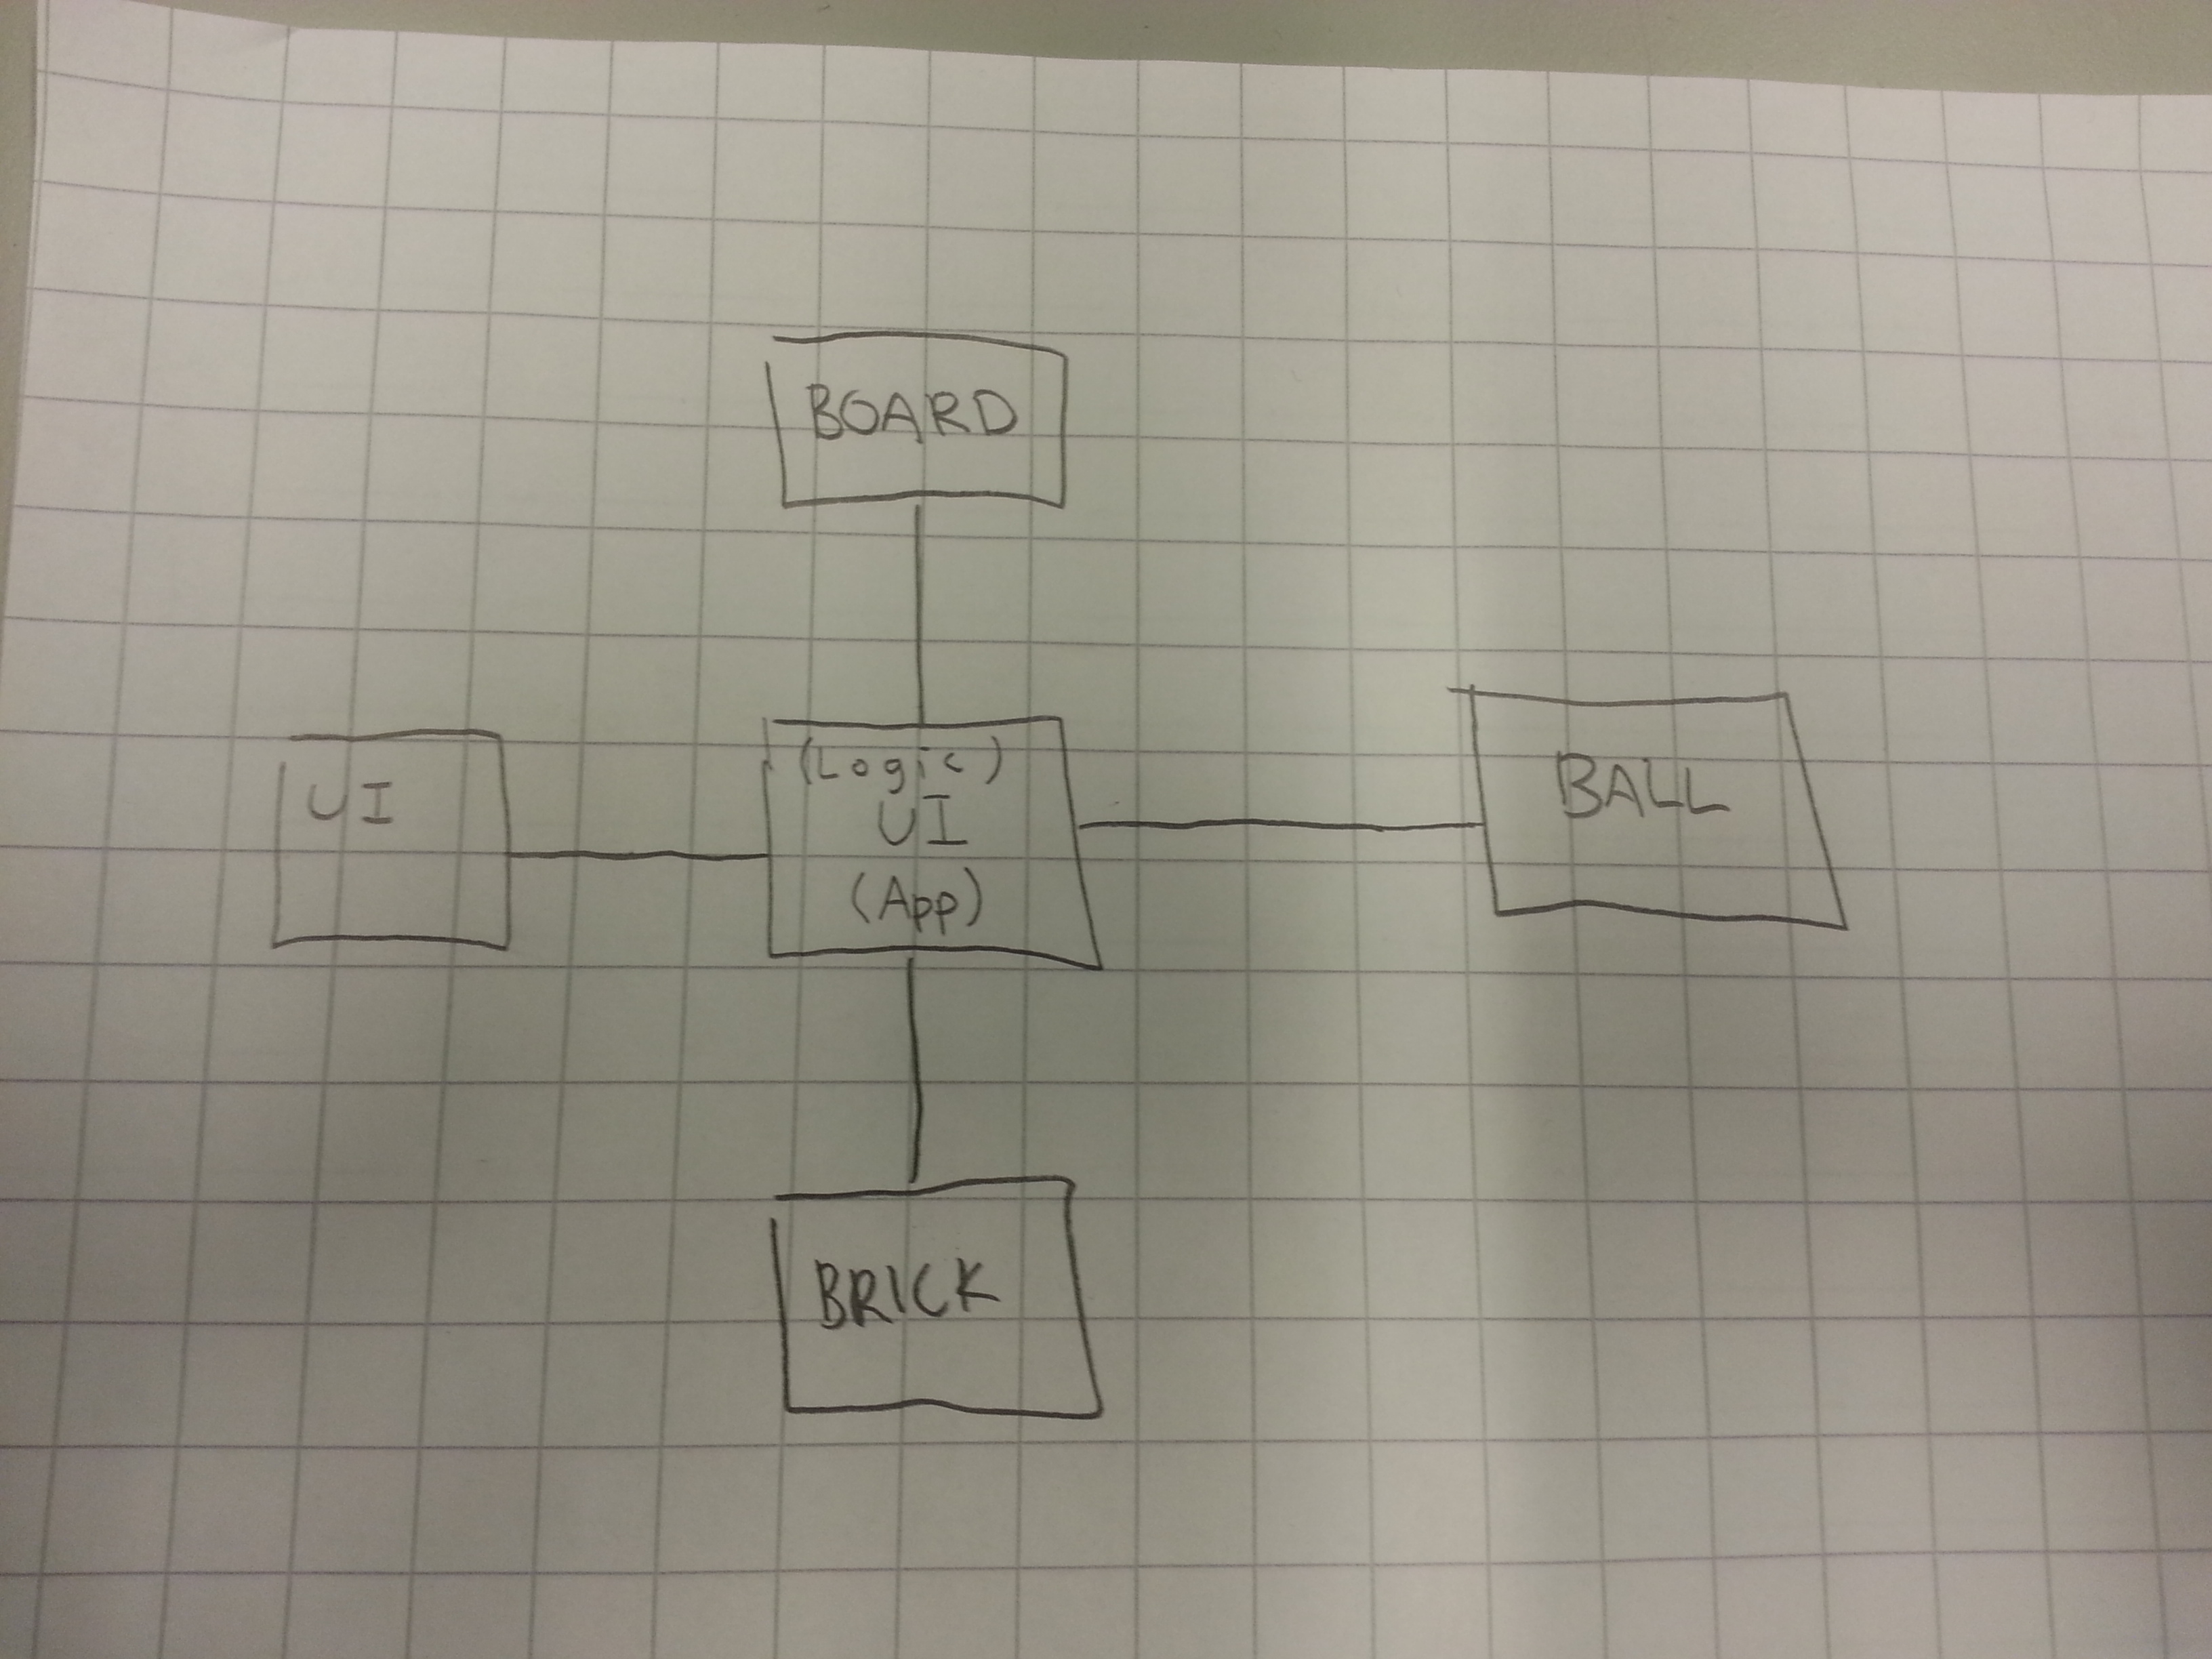 BOARD
UI
(Logic)
UI
(App)
BALL
BRICK